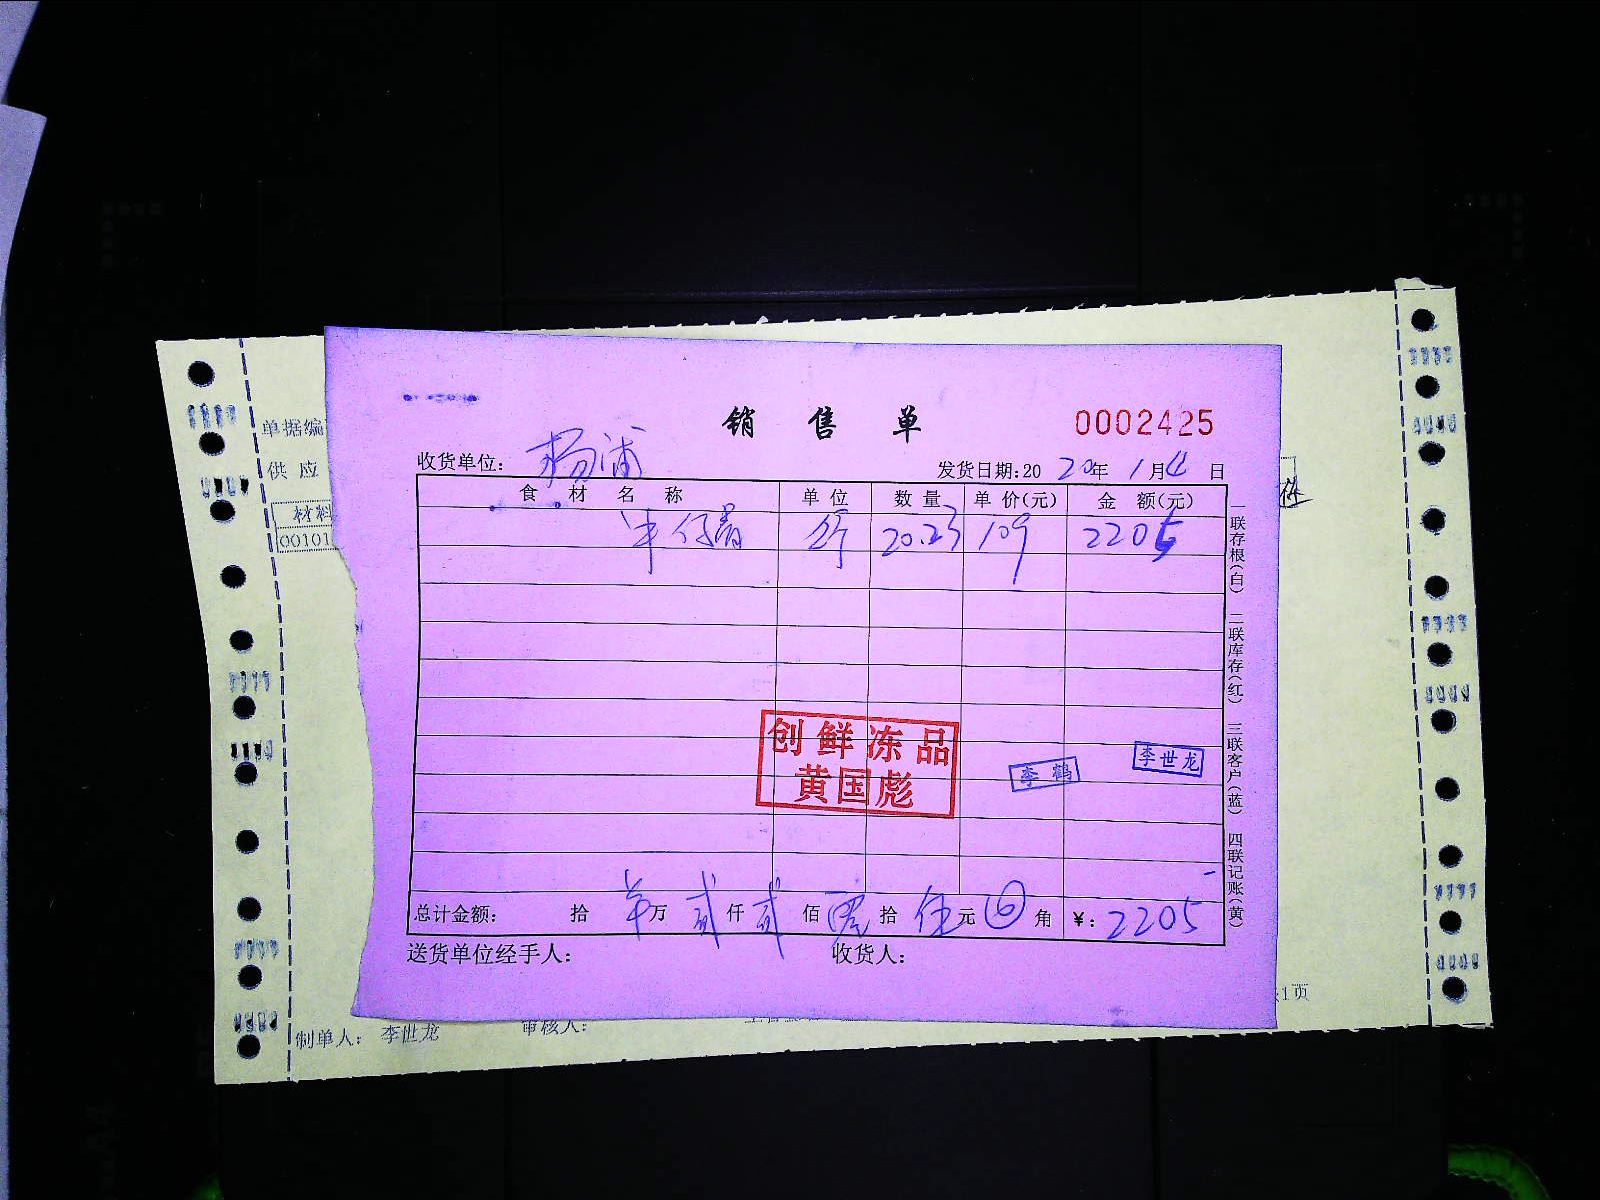 销售单
0002425
单据编
收货单位: 杨浦
发货日期:2020年1月4日
供应
食材名称 单位 数量 单价(元) 金额(元)
材料
牛仔骨 斤 20.23 109 2205
00101
一联存根(白) 二联库存(红) 三联客户(蓝) 四联记账(黄)
创鲜冻品
黄国彪
李鹤
李世龙
总计金额: 拾 万 贰仟贰佰零拾伍元 角 ¥: 2205
送货单位经手人: 收货人:
1页
制单人: 李世龙
审核人: